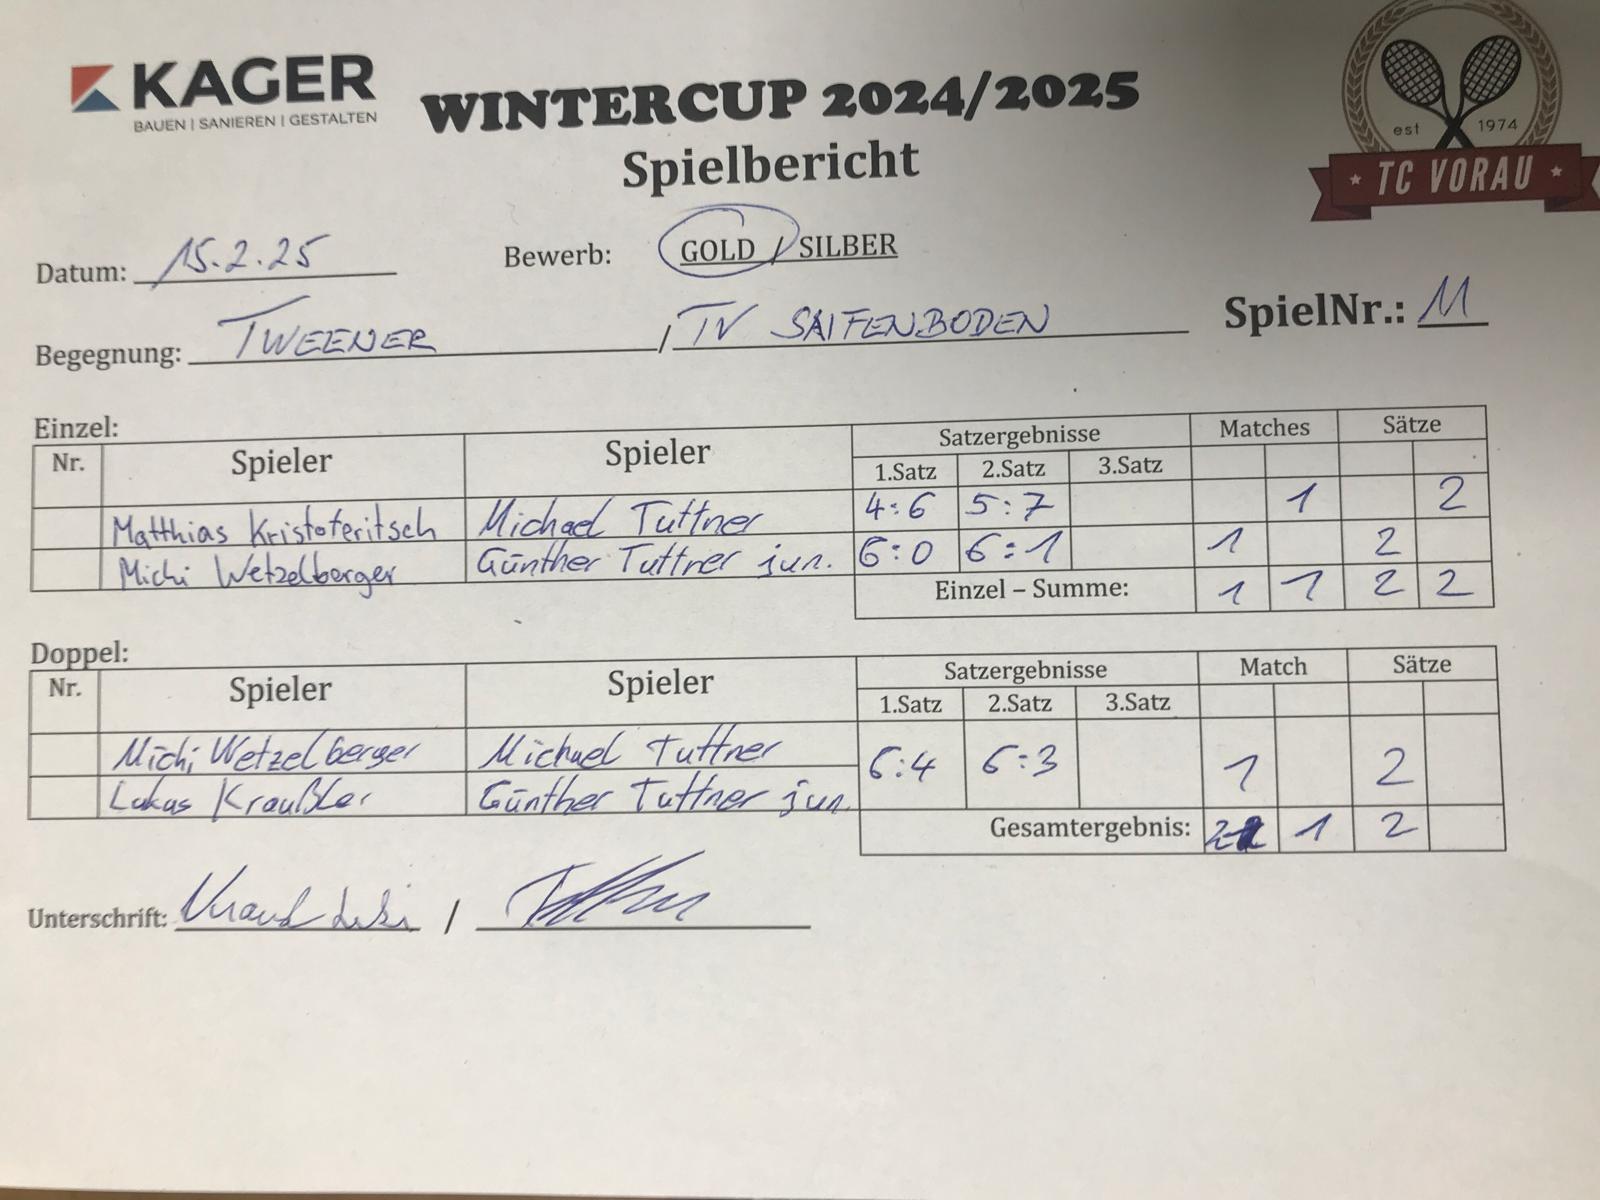 KAGER
BAUEN | SANIEREN | GESTALTEN
WINTERCUP 2024/2025
Spielbericht
est 1974
TC VORAU
Datum: 15.2.25 Bewerb: GOLD / SILBER
Begegnung: TWEENER / TV SAIFENBODEN SpielNr.: 11
Einzel:
Nr. Spieler Spieler Satzergebnisse Matches Sätze
1.Satz 2.Satz 3.Satz
Matthias Kristoferitsch Michael Tuttner 4:6 5:7 1 2
Michi Wetzelberger Günther Tuttner jun. 6:0 6:1 1 2
Einzel – Summe: 1 1 2 2
Doppel:
Nr. Spieler Spieler Satzergebnisse Match Sätze
1.Satz 2.Satz 3.Satz
Michi Wetzelberger Michael Tuttner 6:4 6:3 1 2
Lukas Kraußler Günther Tuttner jun.
Gesamtergebnis: 2 1 2
Unterschrift: /